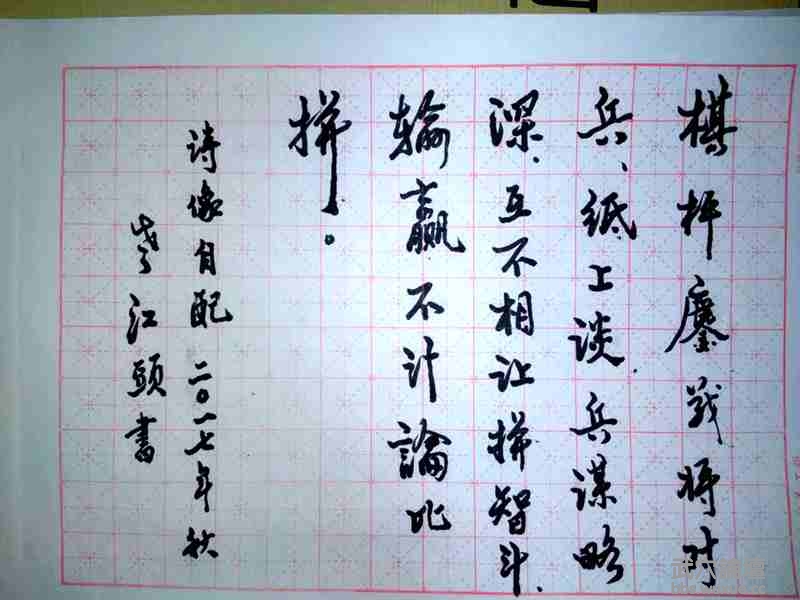 棋枰鏖战将对
兵、纸上谈兵谋略
深、互不相让拼智斗、
输赢不计論比
拼。
诗像自配二〇一七年秋
江頭書